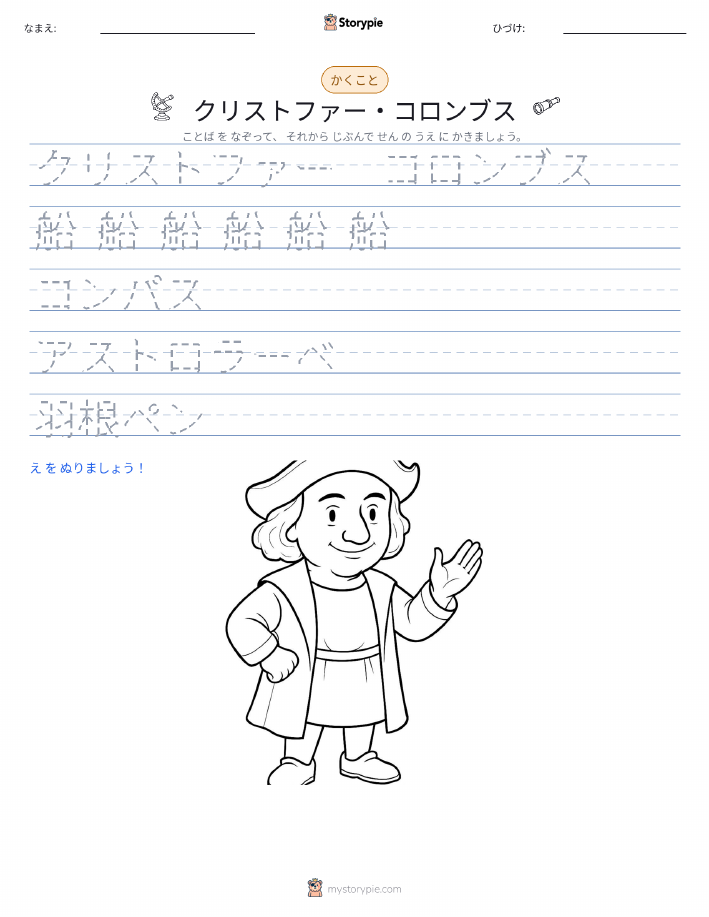 なまえ:
Storypie
ひづけ:
かくこと
クリストファー・コロンブス
ことば を なぞって、 それから じぶんで せん の うえ に かきましょう。
クリストファー コロンブス
船 船 船 船 船 船
コンパス
アストロラーベ
羽根ペン
え を ぬりましょう！
mystorypie.com